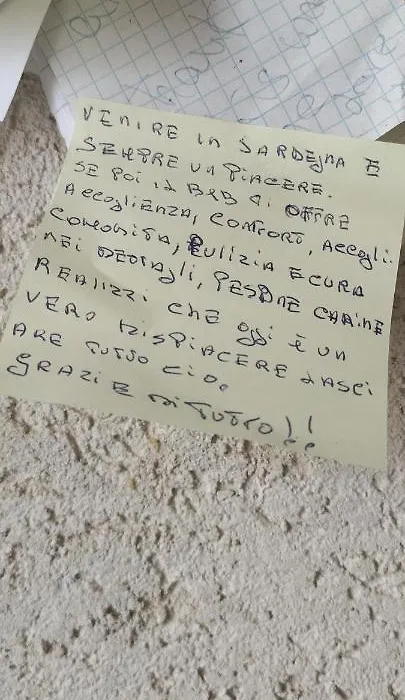 VENIRE in SARDEgNA E
SEMPRE UN PIACERE.
SE POI il B&B ti OFFRE
AccogliENZA, COMFORT, Accogli.
COMODITA, PULIZIA E CURA
NEI DETTAgli, PERSONE CARINE
REAlIZZI CHE OggI è UN
VERO DISPIACERE lASCI
ARE TUTTO CIO.
gRAZIE DI TUTTO!!